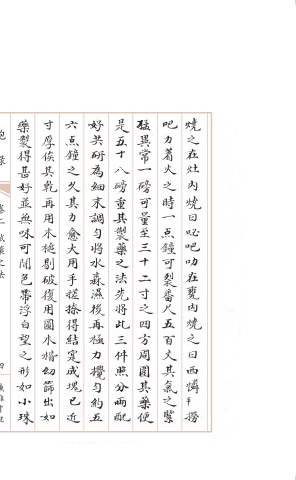 燒之在灶內燒曰吡吧叻在甕內燒之曰西憐半撈
吧力著火之時一点鐘可製番尺五百丈其氣之緊
猛異常一磅可量至三十二寸之四方周圍其藥便
是五十八磅重其製藥之法先將此三件照分兩配
好共研為細末調勻將水淼濕後再極力攪勻約五
六点鐘之久其力愈大用手搓捺得結寔成塊已近
寸厚俟其乾再用木槌剔破復用圓木桶幼篩出如
藥製得甚好並無味可聞色帶浮白望之形如小珠
卷二 試藥之法